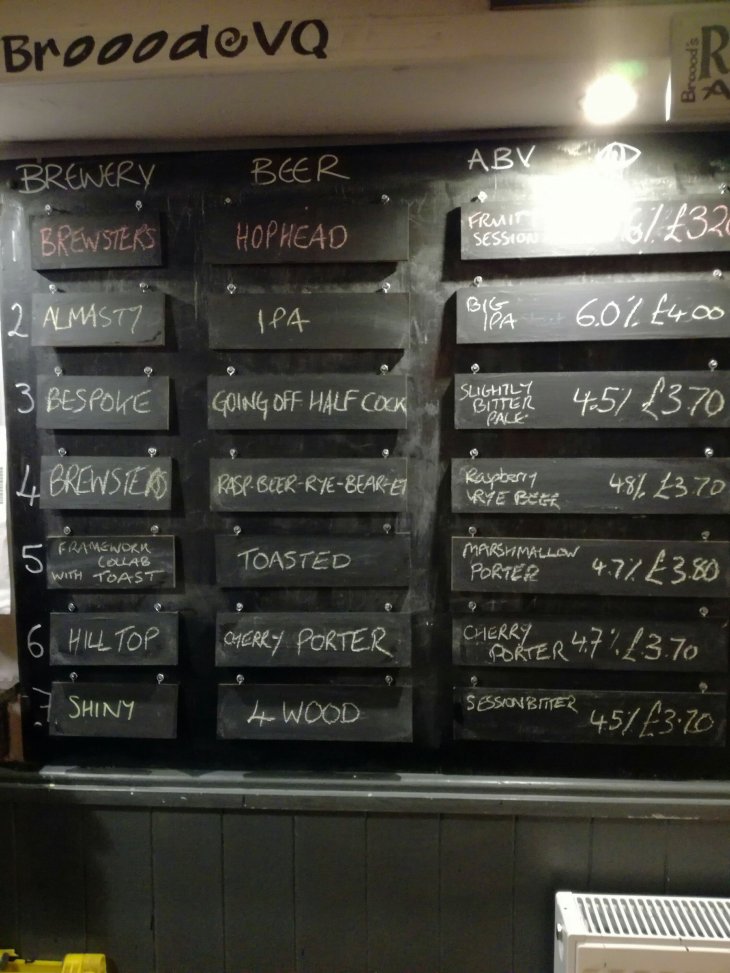 BrooodeVQ
Broood's
R
A
BREWERY BEER ABV
1 BREWSTERS HOPHEAD FRUITY SESSION 6% £320
2 ALMASTY IPA BIG IPA 6.0% £4.00
3 BESPOKE GOING OFF HALF COCK SLIGHTLY BITTER PALE 4.5% £3.70
4 BREWSTERS RASP-BEER-RYE-BEAR-ET Raspberry RYE BEER 4.8% £3.70
5 FRAMEWORK COLLAB WITH TOAST TOASTED MARSHMALLOW PORTER 4.7% £3.80
6 HILL TOP CHERRY PORTER CHERRY PORTER 4.7% £3.70
7 SHINY 4 WOOD SESSION BITTER 4.5% £3.70